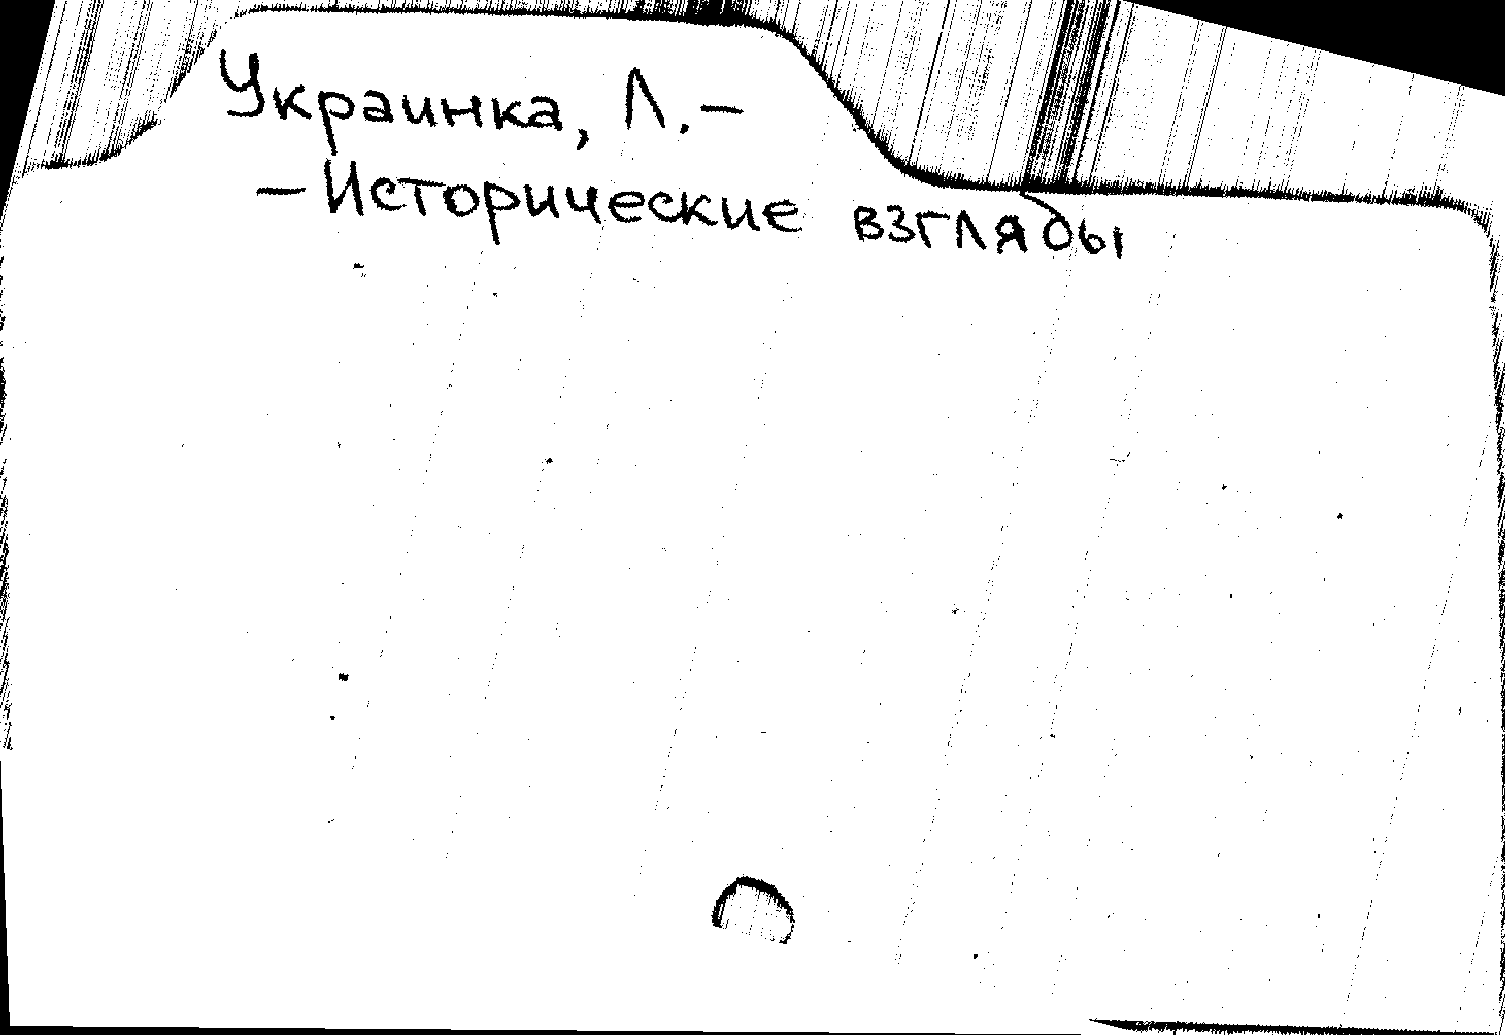 Украинка, Л. –
– Исторические взгляды